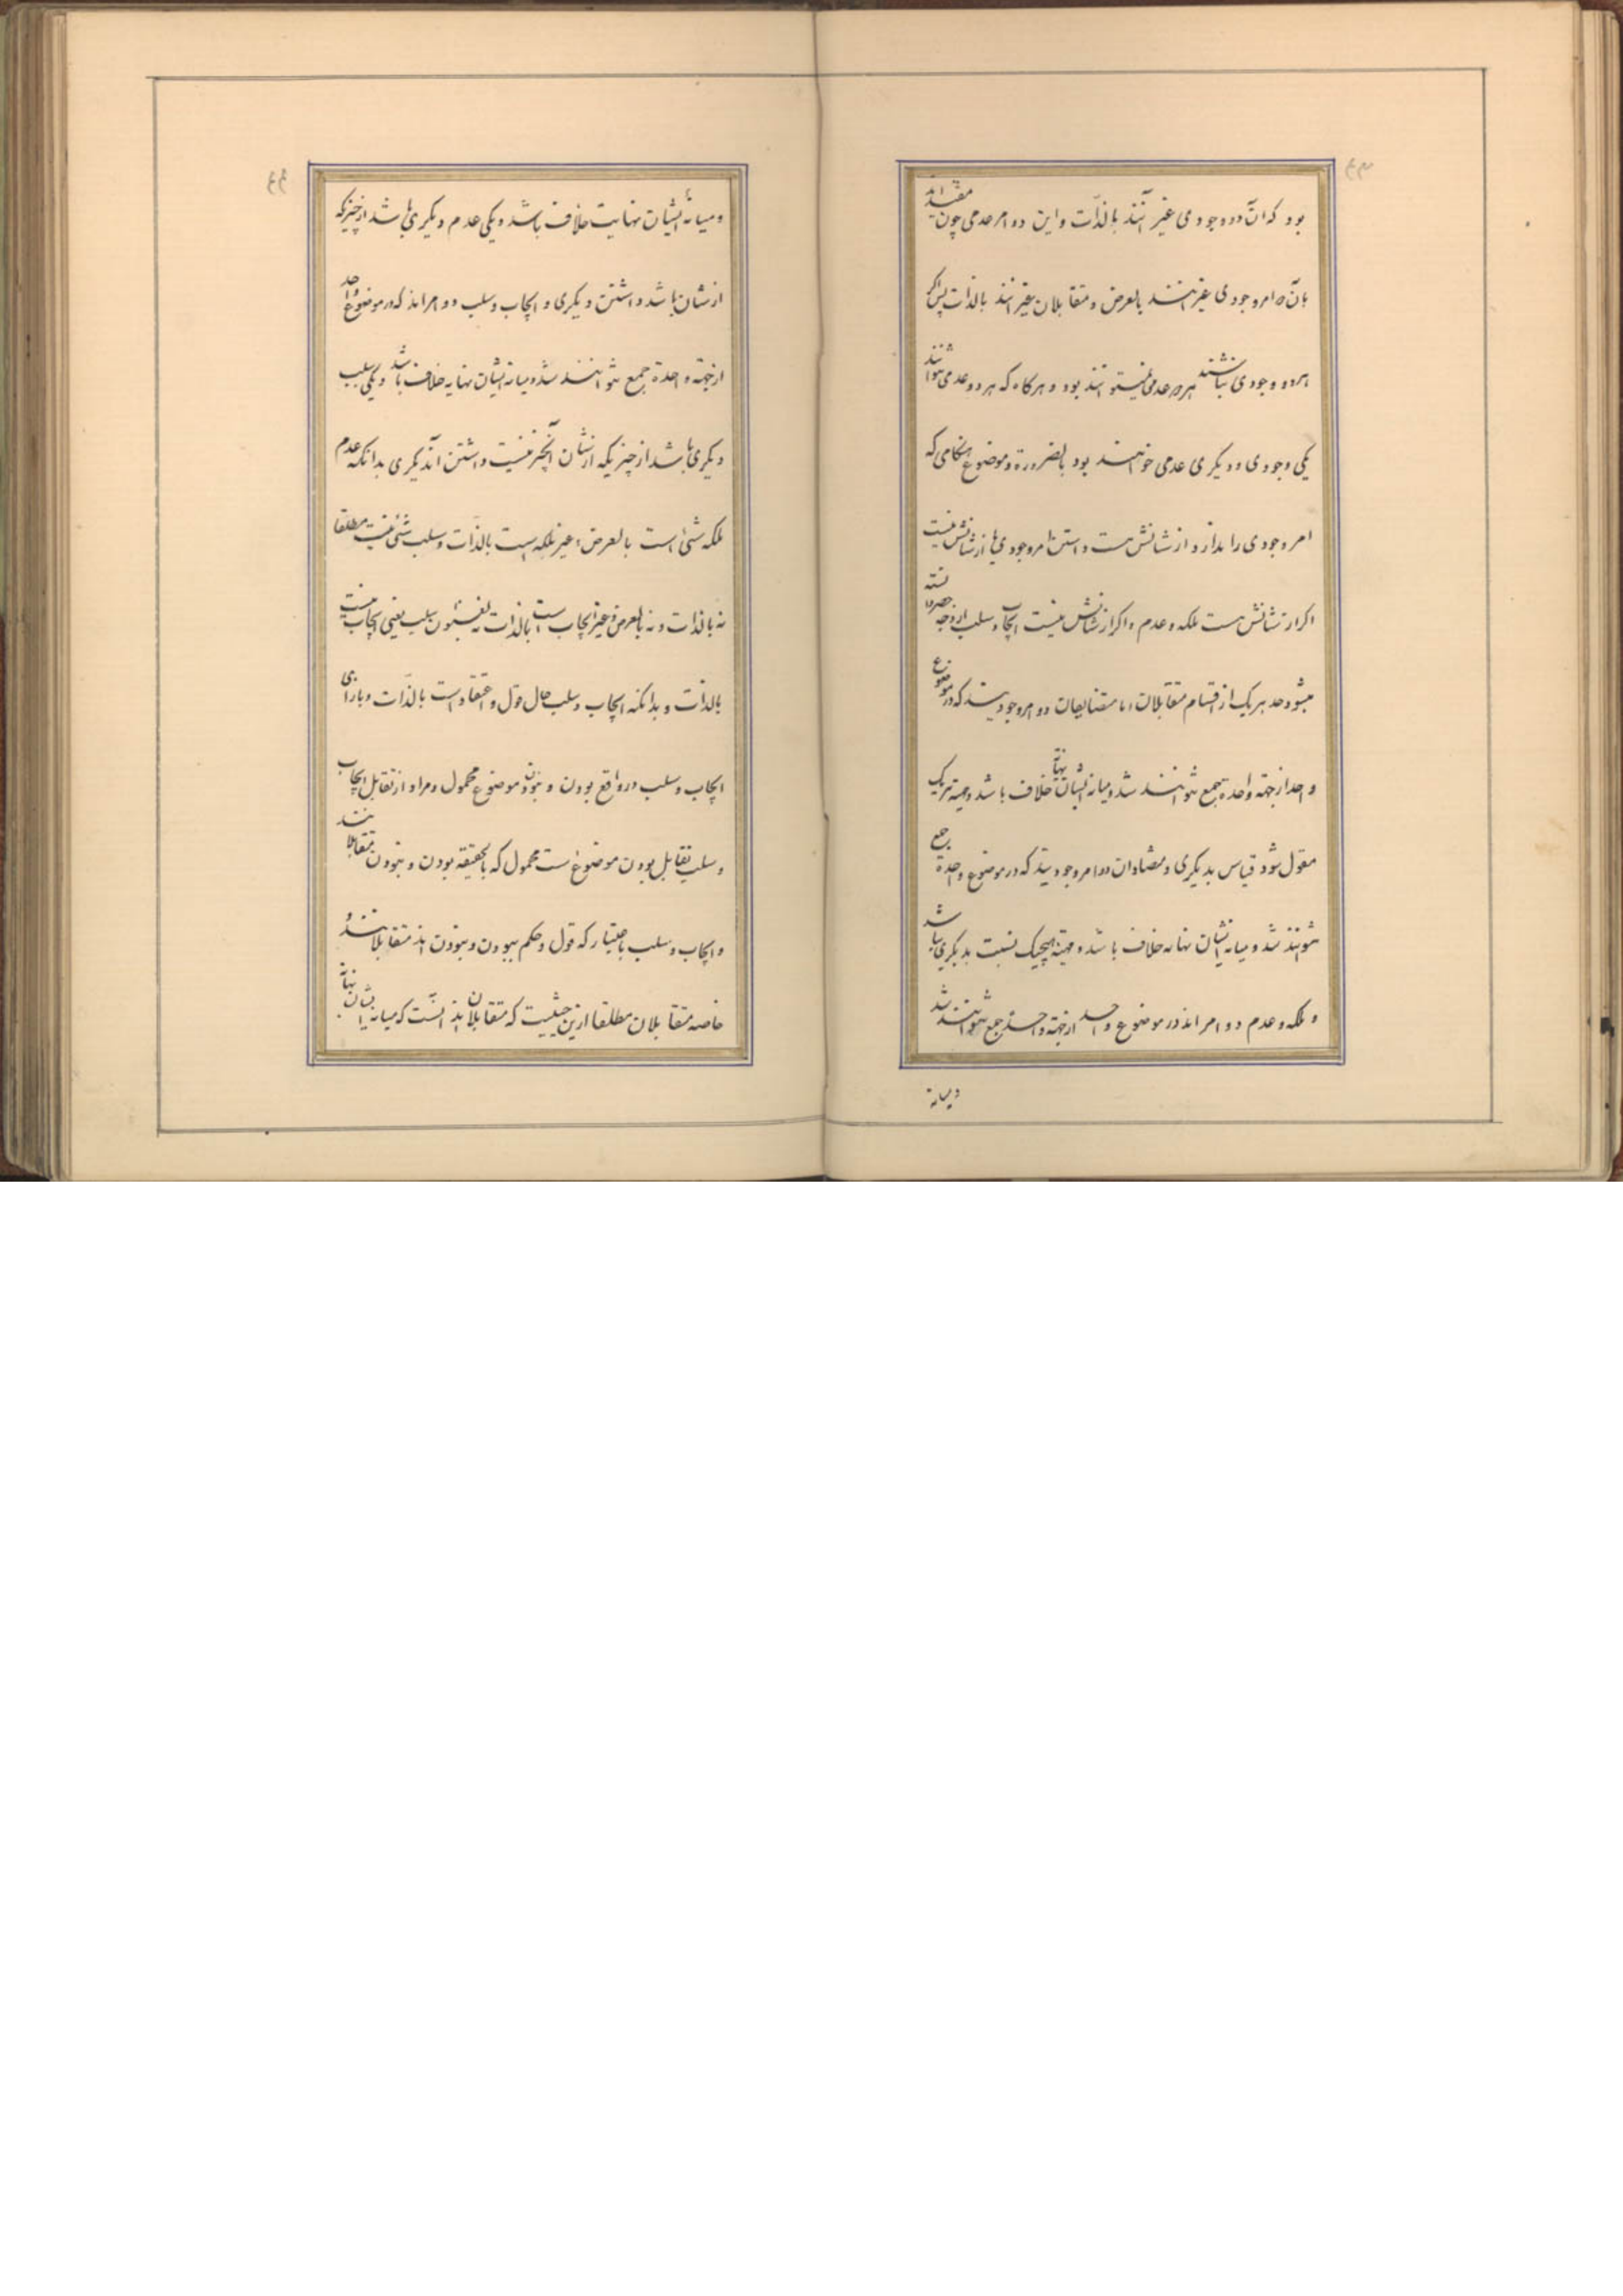 بود که آن دو وجودی غیر آنند بالذات و این دو امر عدمی چون مقیداند
بآن دو امر وجودی غیر آنند بالعرض و متقابلان غیر آنند بالذات پس اگر
هر دو وجودی نباشند هر دو عدمی نیستوانند بود و هرگاه که هر دو عدمی نتوانند
یکی وجودی و دیگری عدمی خواهند بود بالضرورة و موضوع هنگامی که
امر وجودی را ندارد از شانش هست داشتن امر وجودی یا از شانش نیست
اگر از شانش هست ملکه و عدم و اگر از شانش نیست ایجاب و سلب از وجه حصر دانسته
میشود حد هر یک از اقسام متقابلان اما متضایفان دو امر وجودیند که در موضوع
واحد از جهة واحدة جمع نتوانند شد و میانه ایشان نهایة خلاف باشد و مهیة هر یک
مقول شود قیاس بدیگری و متضادان دو امر وجودیند که در موضوع واحدة جمع
نتوانند شد و میانه ایشان نهایه خلاف باشد و مهیة هیچیک نسبت بدیگری نباشد
و ملکه و عدم دو امر اند در موضوع واحد از جهة واحدة جمع نتوانند شد
و میانه
و میانهٔ ایشان نهایت خلاف باشد و یکی عدم دیگری باشد از چیزیکه
از شان باشد داشتن دیگری و ایجاب و سلب دو امر اند که در موضوع واحد
از جهة واحدة جمع نتوانند شد و میانه ایشان نهایه خلاف باشد و یکی سلب
دیگری باشد از چیزیکه از شان آنچیز نیست داشتن آندیگری بدانکه عدم
ملکه شیٔ است بالعرض و غیر ملکه است بالذات و سلب شیٔ نیست مطلقا
نه بالذات و نه بالعرض و غیر ایجاب است بالذات سلب یعنی ایجاب نیست
بالذات و بدانکه ایجاب و سلب حال قول و اعتقاد است بالذات و بازای
ایجاب و سلب در واقع بودن و نبودن موضوع محمول و مراد از تقابل ایجاب
و سلب تقابل بودن موضوع است محمول که بالحقیقه بودن و نبودن متقابلانند
و ایجاب و سلب باعتبار که قول و حکم ببودن و نبودن اند متقابلانند و
خاصه متقابلان مطلقا ازین حیثیت که متقابلان اند آنست که میانه ایشان نهایة